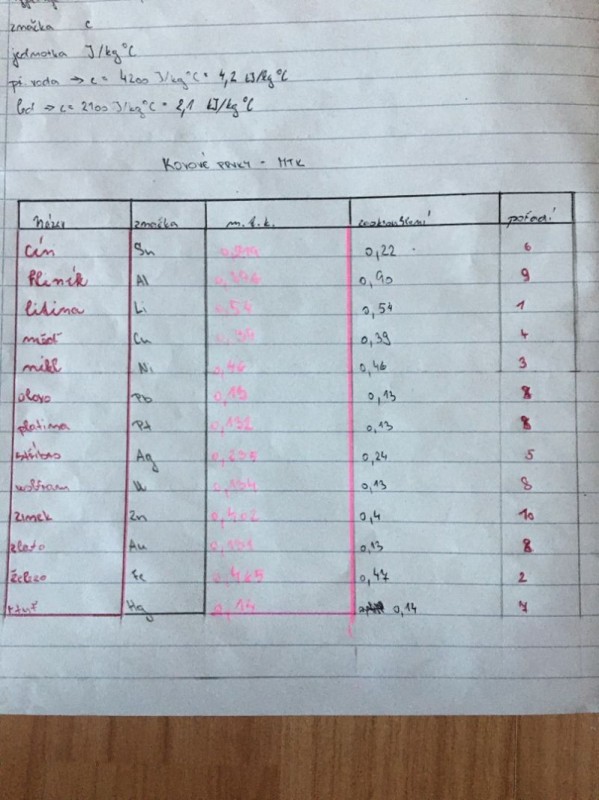 značka c
jednotka J/kg°C
př. voda → c = 4200 J/kg°C = 4,2 kJ/kg°C
led → c = 2100 J/kg°C = 2,1 kJ/kg°C
KOVOVÉ PRVKY - MTK
název značka m.t.k. zaokrouhlení pořadí
Cín Sn 0,22 6
hliník Al 0,896 0,90 9
litina Li 0,54 0,54 1
měď Cu 0,39 0,39 4
nikl Ni 0,46 0,46 3
olovo Pb 0,13 0,13 8
platina Pt 0,132 0,13 8
stříbro Ag 0,235 0,24 5
wolfram W 0,134 0,13 8
zinek Zn 0,402 0,4 10
zlato Au 0,131 0,13 8
železo Fe 0,465 0,47 2
rtuť Hg 0,14 0,14 7